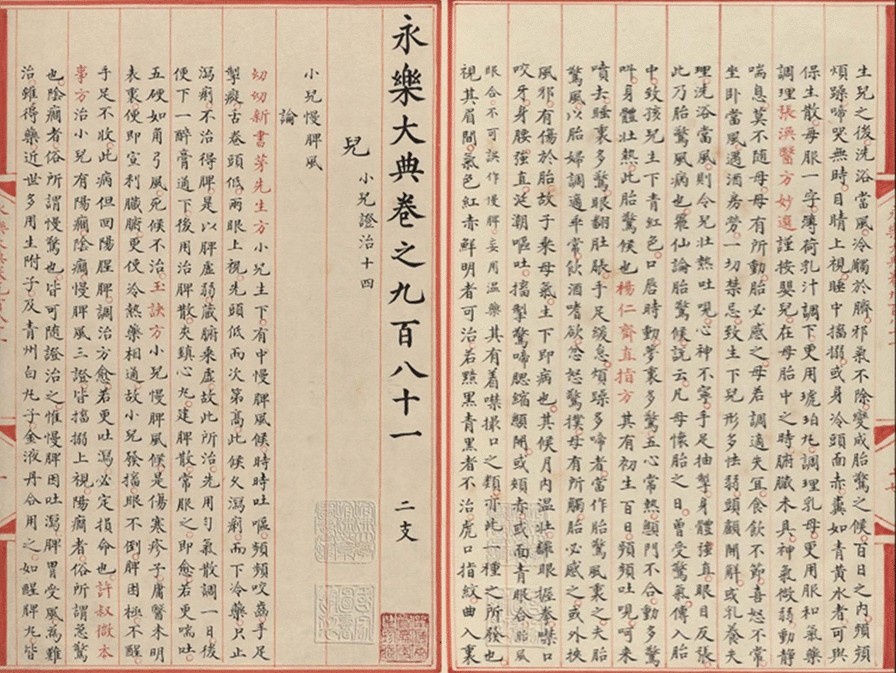 永樂大典卷之九百八十一 二支
兒 小兒證治十四
小兒慢脾風
論
幼幼新書茅先生方小兒生下有中慢脾風候時時吐嘔頻頻咬齒手足
掣瘲舌卷頭低兩眼上視先頭低而次第高此候久瀉痢而下冷藥只止
瀉痢不治得脾是以脾虛弱藏腑乘虛故此所治先用勻氣散調一日後
便下一醉膏通下後用治脾散夾鎮心丸建脾散常服之即愈若更喘吐
五硬如角弓風死候不治玉訣方小兒慢脾風候是傷寒疹子庸醫未明
表裏便即宣利臟腑更使冷熱藥相過故小兒發搐眼不倒脾困極不醒
手足不收此病但回陽醒脾調治方愈若更吐瀉必定損命也許叔微本
事方治小兒有陽癇陰癇慢脾風三證皆搐搦上視陽癇者俗所謂急驚
也陰癇者俗所謂慢驚也皆可隨證治之惟慢脾因吐瀉脾胃受風為難
治雖得藥近世多用生附子及青州白丸子金液丹合用之如醒脾丸皆
生兒之後洗浴當風冷觸於臍邪氣不除變成胎驚之候百日之內頻頻
煩躁啼哭無時目睛上視睡中搐搦或身冷頭面赤糞如青黃水者可與
保生散母服一字薄荷乳汁調下更用琥珀丸調理乳母更用服和氣藥
調理張渙醫方妙選謹按嬰兒在母胎中之時腑臟未具神氣微弱動靜
喘息莫不隨母母有所動胎必感之母若調適失宜食飲不節喜怒不常
坐臥當風過酒房勞一切禁忌致生下兒形多怯弱頭顱開解或乳養失
理洗浴當風則令兒壯熱吐哯心神不寧手足抽掣身體強直眼目反張
此乃胎驚風病也飛仙論胎驚候說云凡母懷胎之日曾受驚氣傳入胎
中致孩兒生下青紅色口唇時動夢裏多驚五心常熱顖門不合動多驚
呌身體壯熱此胎驚候也楊仁齋直指方其有初生百日頻頻吐哯呵來
噴去睡裏多驚眼翻肚脹手足緩急煩躁多啼者當作胎驚風裏之夫胎
驚風以胎婦調適乖常飲酒嗜欲忿怒驚撲母有所觸胎必感之或外挾
風邪有傷於胎故子乘母氣生下即病也其候月內溫壯翻眼握拳噤口
咬牙身腰強直涎潮嘔吐搐掣驚啼腮縮顖開或頰赤或面青眼合胎風
眼合不可誤作慢脾妄用溫藥其有着噤撮口之類亦此一種之所發也
視其眉間氣色紅赤鮮明者可治若黯黑青黑者不治虎口指紋曲入裏